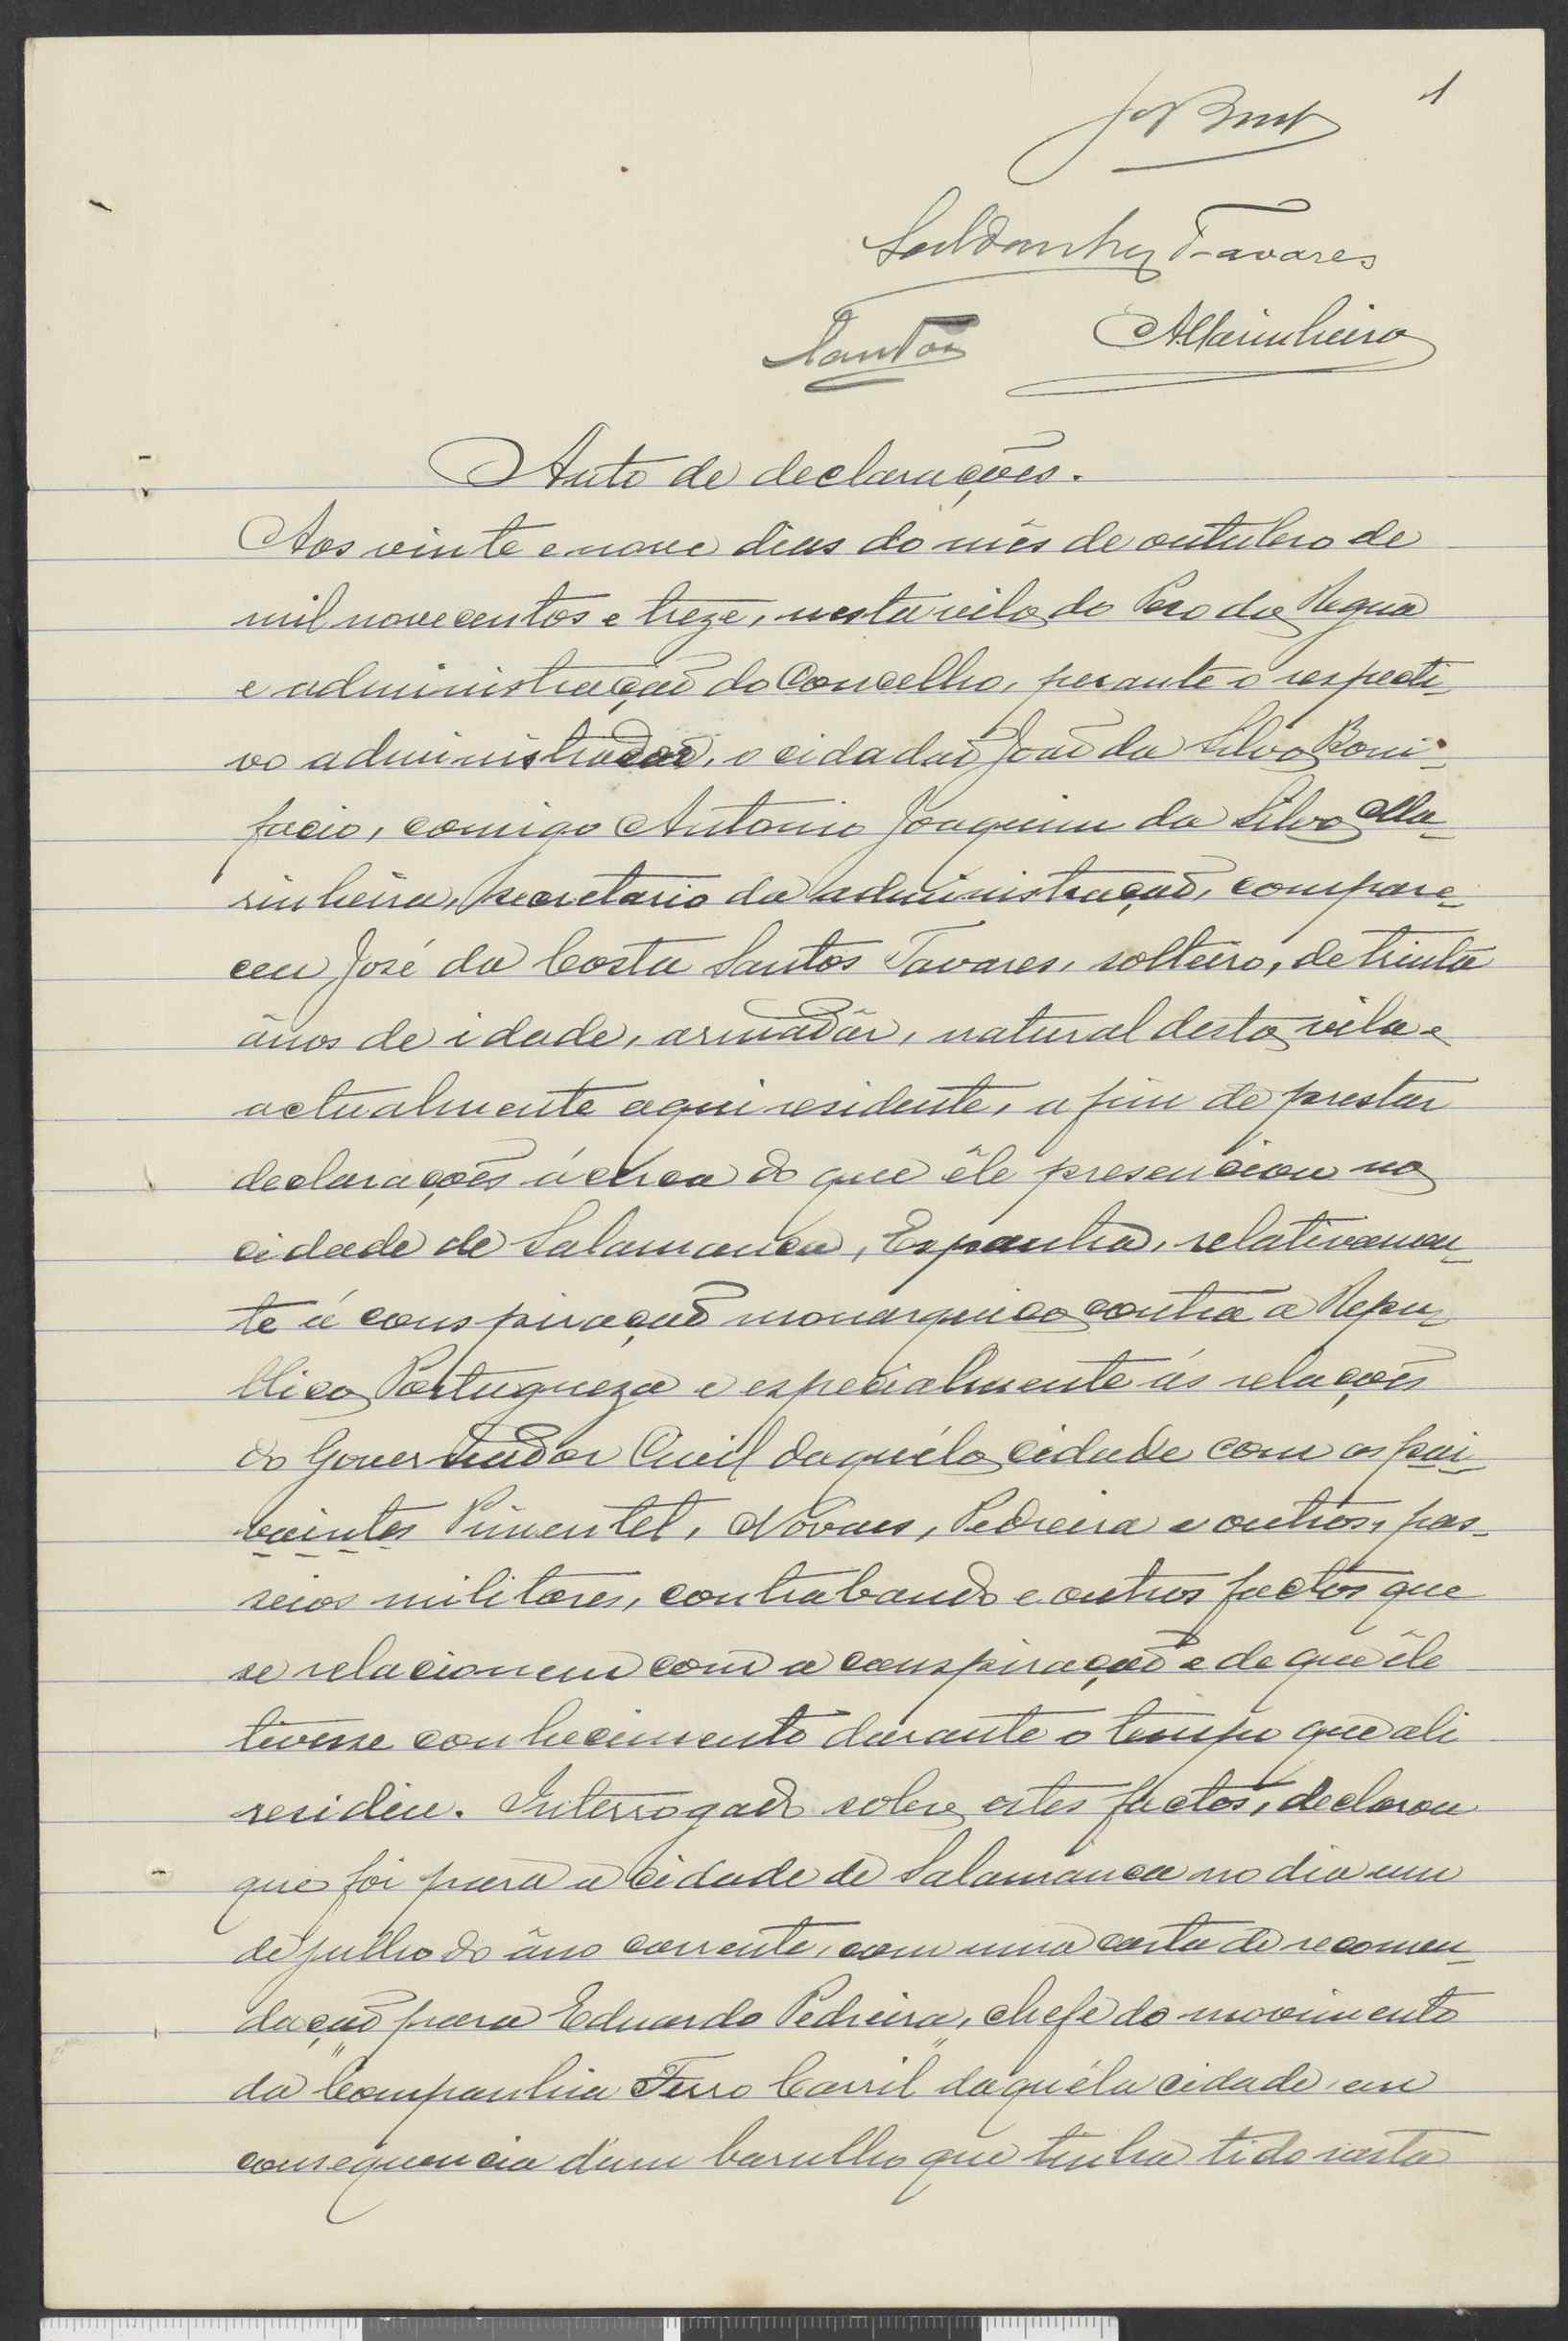 1
Saldanha Tavares
Marinheiro
Auto de declarações.
Aos vinte e nove dias do mês de outubro de
mil novecentos e treze, nesta vila do Peso da Regua
e administração do Concelho, perante o respecti-
vo administrador, o cidadão João da Silva Boni-
facio, comigo Antonio Joaquim da Silva Ma-
rinheiro, secretario da administração, compare-
ceu José da Costa Santos Tavares, solteiro, de trinta
ânos de idade, armadôr, natural desta vila e
actualmente aqui residente, a fim de prestar
declarações ácerca do que êle presenciou na
cidade de Salamanca, Espanha, relativamen-
te á conspiração monarquica contra a Repu-
blica Portugueza e especialmente ás relações
do Governador Civil daquéla cidade com os pai-
vaintes Pimentel, Novaes, Pedreira e outros, pas-
seios militares, contrabando e outros factos que
se relacionem com a conspiração e de que êle
tivesse conhecimento durante o tempo que ali
residiu. Interrogado sobre estes factos, declarou
que foi para a cidade de Salamanca no dia um
de julho do âno corrente, com uma carta de recomen-
dação para Eduardo Pedreira, chefe do movimento
da "Companhia Ferro Carril" daquéla cidade, em
consequencia d'um barulho que tinha tido nesta